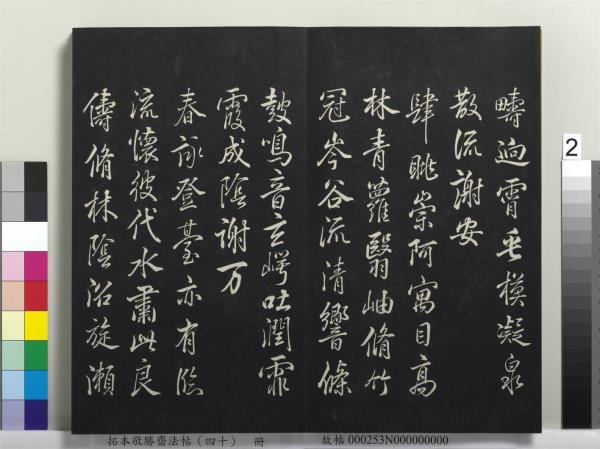 疇迥霄垂模凝泉
散流謝安
肆眺崇阿寓目高
林青蘿翳岫脩竹
冠岑谷流清響條
鼓鳴音玄崿吐潤霏
霞成陰謝万
春詠登臺亦有臨
流懷彼伐木肅此良
儔脩林陰沼旋瀨
2
拓本敬勝齋法帖(四十) 冊
故帖 000253N000000000